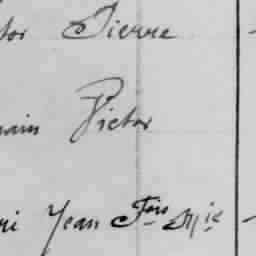 tor Pierre
main Victor
ni Jean Fois